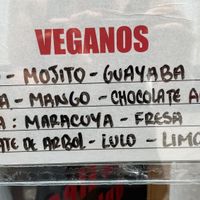 VEGANOS
- MOJITO - GUAYABA
- MANGO - CHOCOLATE
: MARACUYA - FRESA
DE ARBOL - LULO -